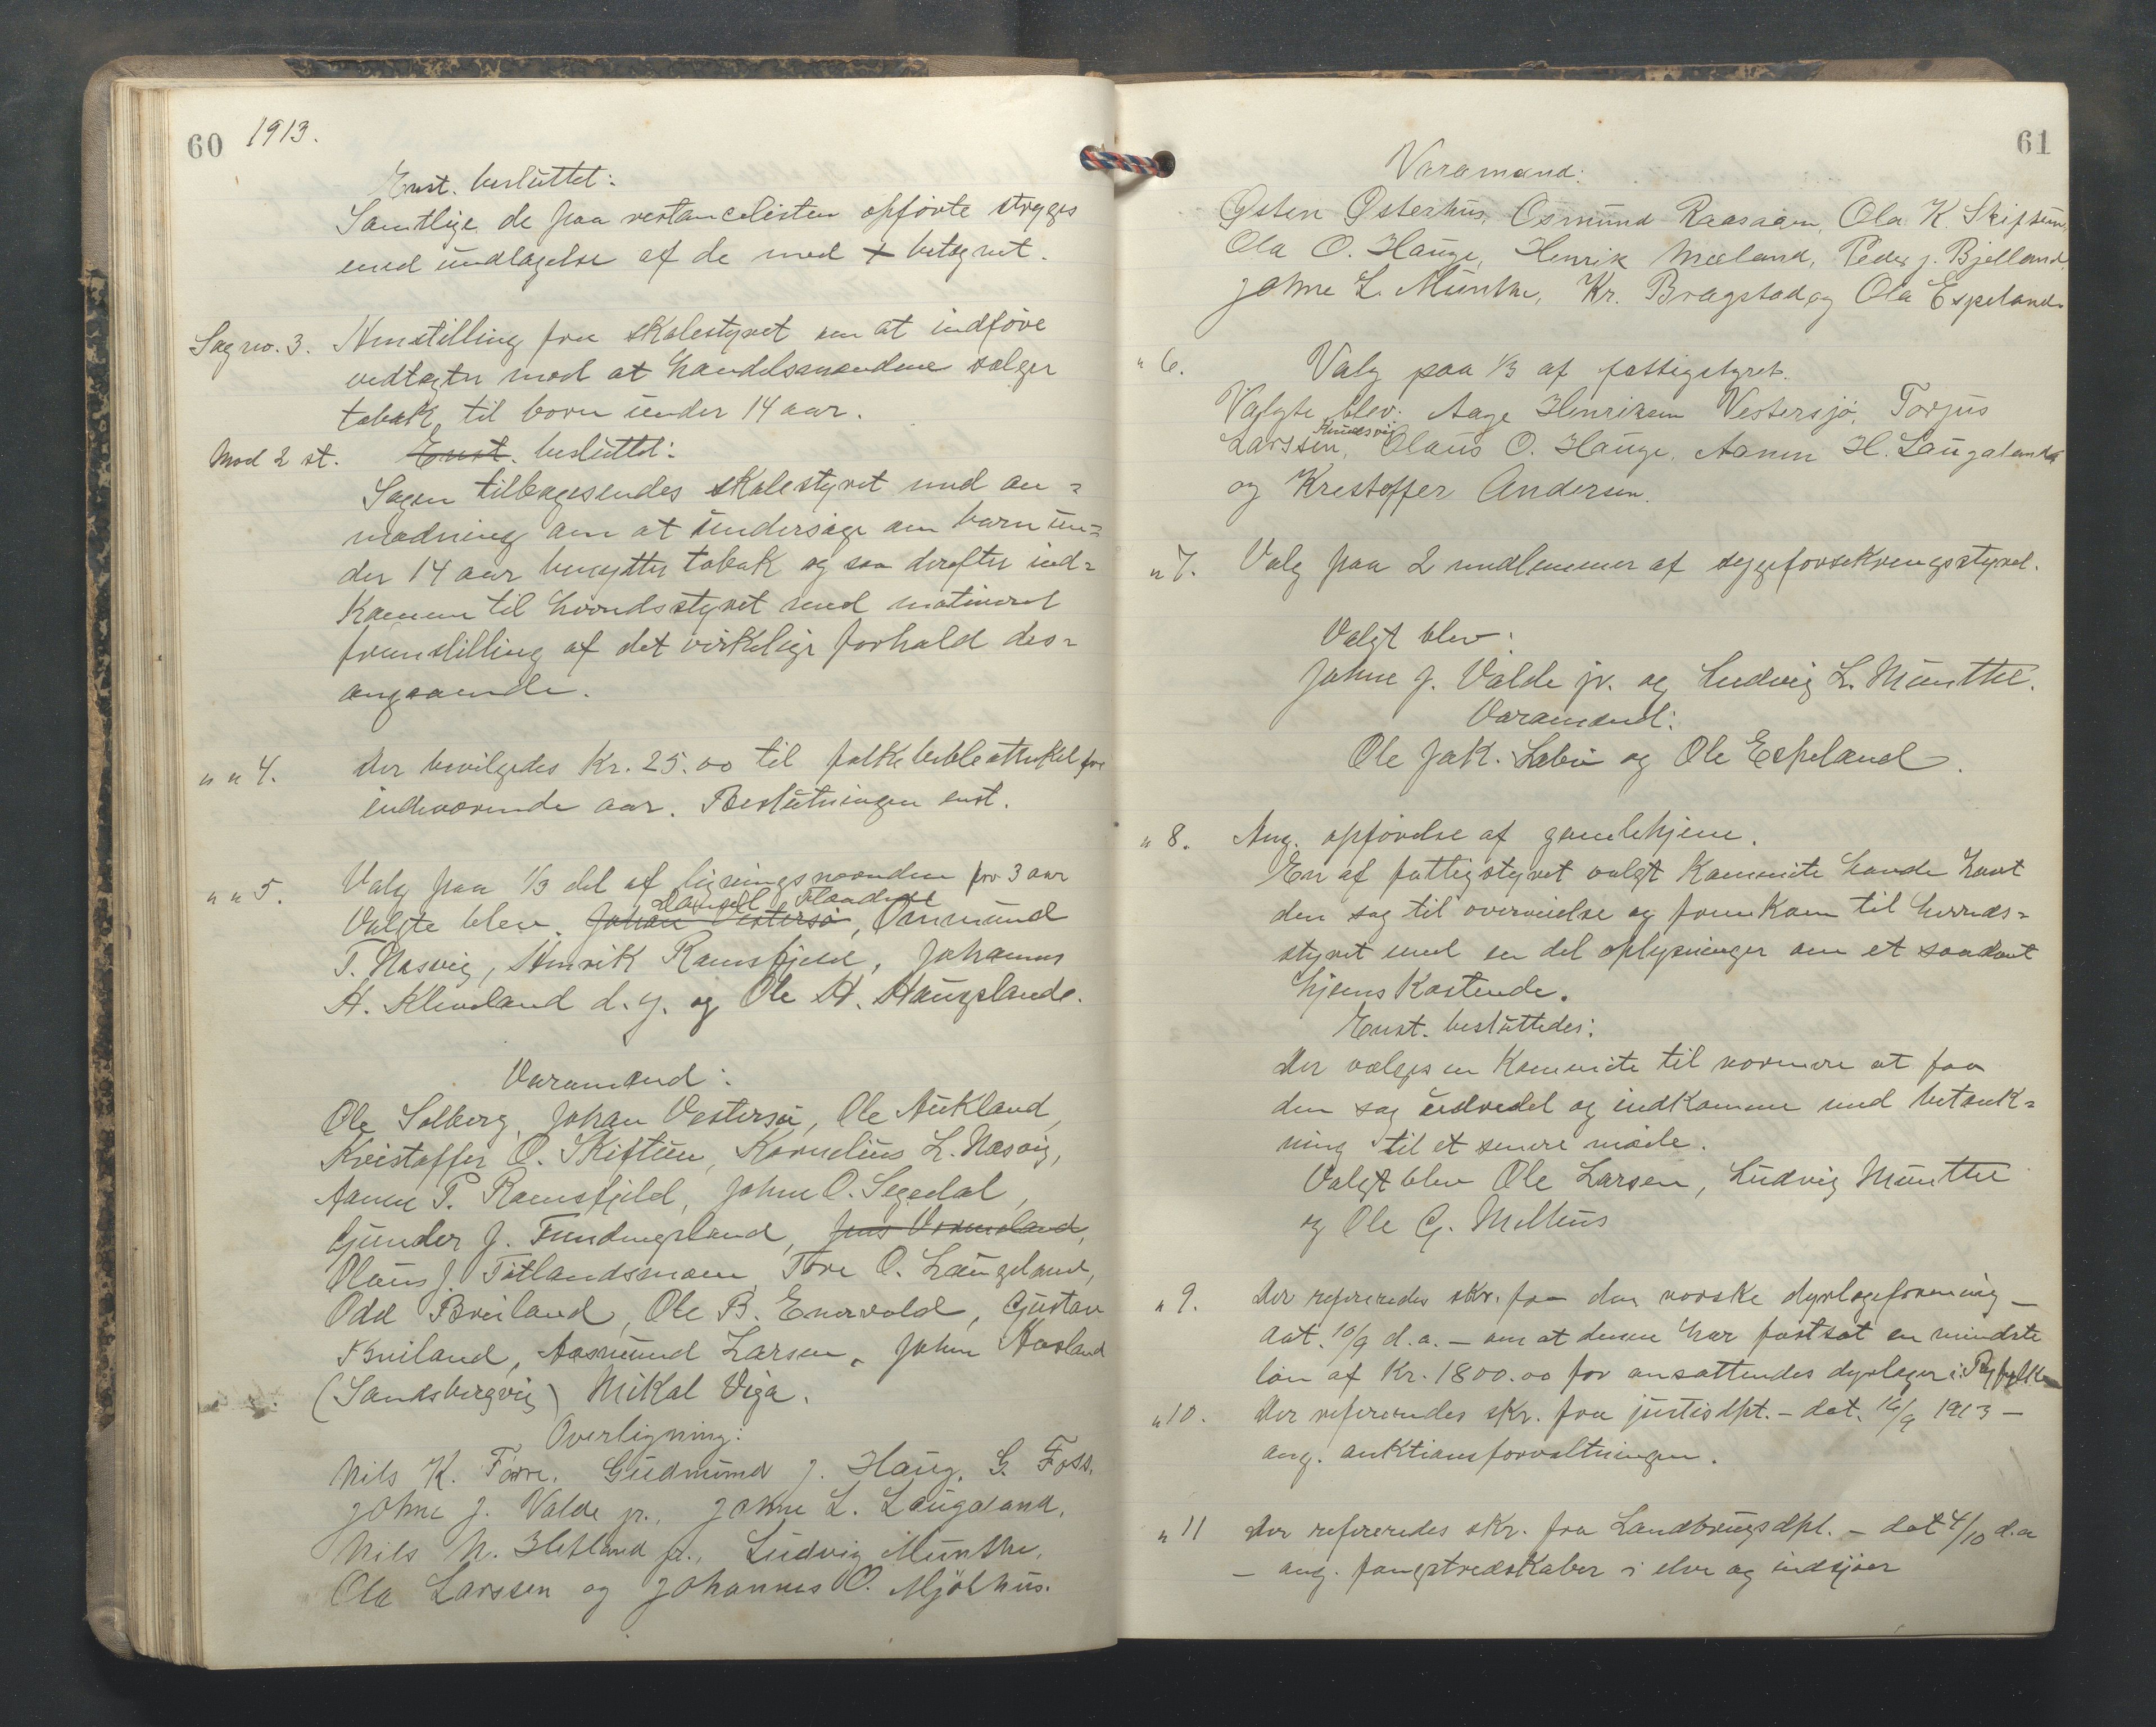 60 1913.
Enst. besluttet:
Samtlige de paa restancelisten opførte stryges
med undtagelse af de med + betegnet.
Sag no. 3. Henstilling fra skolestyret om at indføre
vedtægter mod at handelsmændene sælger
tobak til børn under 14 aar.
Mod 2 st. Enst. besluttet:
Sagen tilbagesendes skolestyret med an=
modning om at undersøge om barn un=
der 14 aar benytter tobak og saa derefter ind=
komme til herredsstyret med motiveret
fremstilling af det virkelige forhold des=
angaaende.
" " 4. Der bevilgedes Kr. 25.00 til folkebibliotheket for
indeværende aar. Beslutningen enst.
" " 5. Valg paa 1/3 del af ligningsnævnden for 3 aar
Valgte blev. Johan Vestersø, Ommund
T. Næsvig, Henrik Ramsfjeld, Johannes
H. Kleveland d.y. og Ole H. Haugslande.
Varamænd:
Ole Solberg, Johan Vestersø, Ole Aukland,
Kristoffer O. Skiftun, Kornelius L. Næsvig,
Aanen P. Ramsfjeld, John O. Segedal,
Gunder J. Fundingsland, Jens Vormeland,
Olaus J. Tøtlandsmoen, Tore O. Laugeland,
Odd Breiland, Ole B. Enervold, Gustav
Breiland, Aasmund Larsen, John Aasland
(Sandsbergvig) Mikal Viga.
Overligning:
Nils K. Førre, Gudmund J. Haug, G. Foss,
Johne J. Valde jr., Johne L. Laugaland,
Nils N. Hetland jr., Ludvig Munthe,
Ola Larssen og Johannes O. Mjølhus.
61
Varamænd:
Østen Østerhus, Osmund Raasaaen, Ola K. Skiftun,
Ola O. Hauge, Henrik Mæland, Peder J. Bjelland,
Johne L. Munthe, Kr. Bragstad og Ola Espeland.
" 6. Valg paa 1/3 af fattigstyret.
Valgte blev: Aage Henriksen Vestersjø, Torjus
Larssen, Knudsvig Olaus O. Hauge, Aanen H. Laugaland
og Krestoffer Andersen.
" 7. Valg paa 2 medlemmer af sygeforsekringsstyret.
Valgt blev:
Johne J. Valde jr. og Ludvig L. Munthe.
Varamænd:
Ole Jak. Labu og Ole Espeland.
" 8. Ang. opførelse af gamlehjem.
En af fattigstyret valgt Kommite havde havt
den sag til overveielse og fremkom til herreds=
styret med en del oplysninger om et saadant
hjems Kostende.
Enst. besluttedes:
Der vælges en Kommite til nærmere at faa
den sag udredet og indkomme med betænk=
ning til et senere møde.
Valgt blev Ole Larsen, Ludvig Munthe
og Ole G. Melhus
" 9. Der refereredes skr. fra den norske dyrlægeforening –
dat. 10/9 d.a. – om at denne har fastsat en mindste
løn af Kr. 1800.00 for ansættendes dyrlæger i Ryfylke
" 10. Der refereredes skr. fra justisdpt. – dat. 16/9 1913 –
ang. auktionsforvaltningen.
" 11 Der refereredes skr. fra Landbrugsdpt. – dat 4/10 d.a
– ang. fangstredskaber i elve og indsjøer